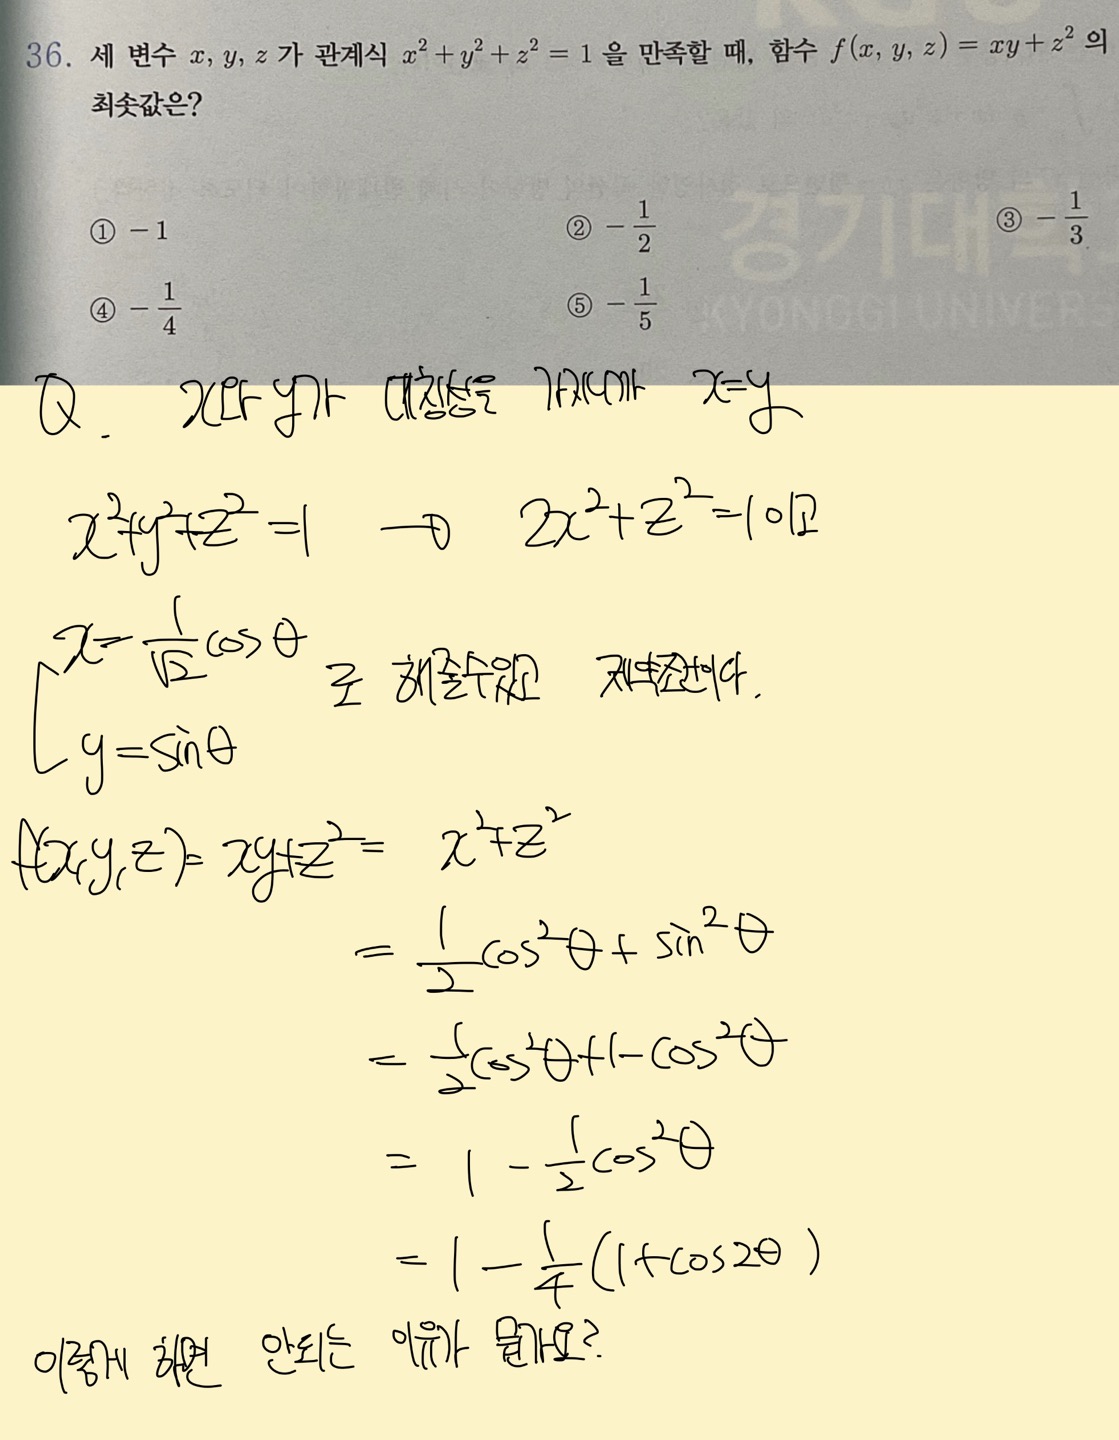 36. 세 변수 x, y, z 가 관계식 x² + y² + z² = 1 을 만족할 때, 함수 f(x, y, z) = xy + z² 의
최솟값은?
① −1 ② −1/2 ③ −1/3
④ −1/4 ⑤ −1/5
경기대학
KYONGGI UNIVER
Q. x와 y가 대칭성을 가지니까 x=y
x²+y²+z²=1 → 2x²+z²=1이고
x=1/√2 cosθ
로 해줄수있고 제약조건이다.
y=sinθ
f(x,y,z)= xy+z²= x²+z²
= 1/2 cos²θ + sin²θ
= 1/2 cos²θ+1−cos²θ
= 1 − 1/2 cos²θ
= 1 − 1/4 (1+cos2θ)
이렇게 하면 안되는 이유가 뭘까요?